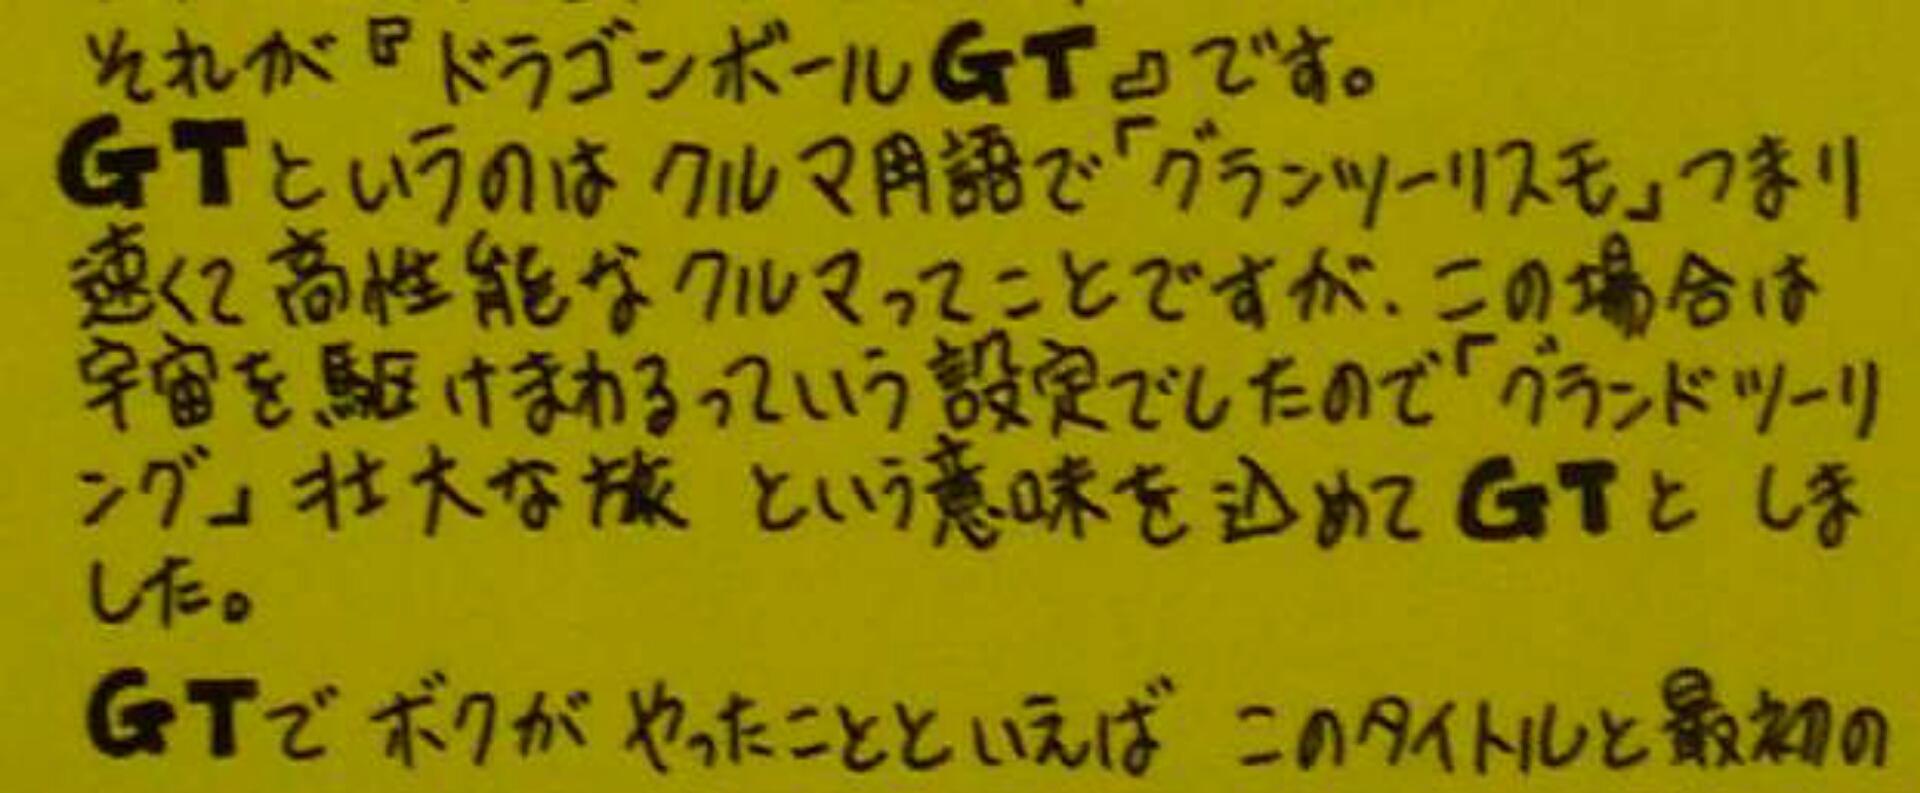 それが『ドラゴンボールGT』です。
GTというのはクルマ用語で「グランツーリスモ」つまり
速くて高性能なクルマってことですが、この場合は
宇宙を駆けまわるっていう設定でしたので「グランドツーリ
ング」壮大な旅 という意味を込めてGTと しま
した。
GTでボクが やったことといえば このタイトルと最初の